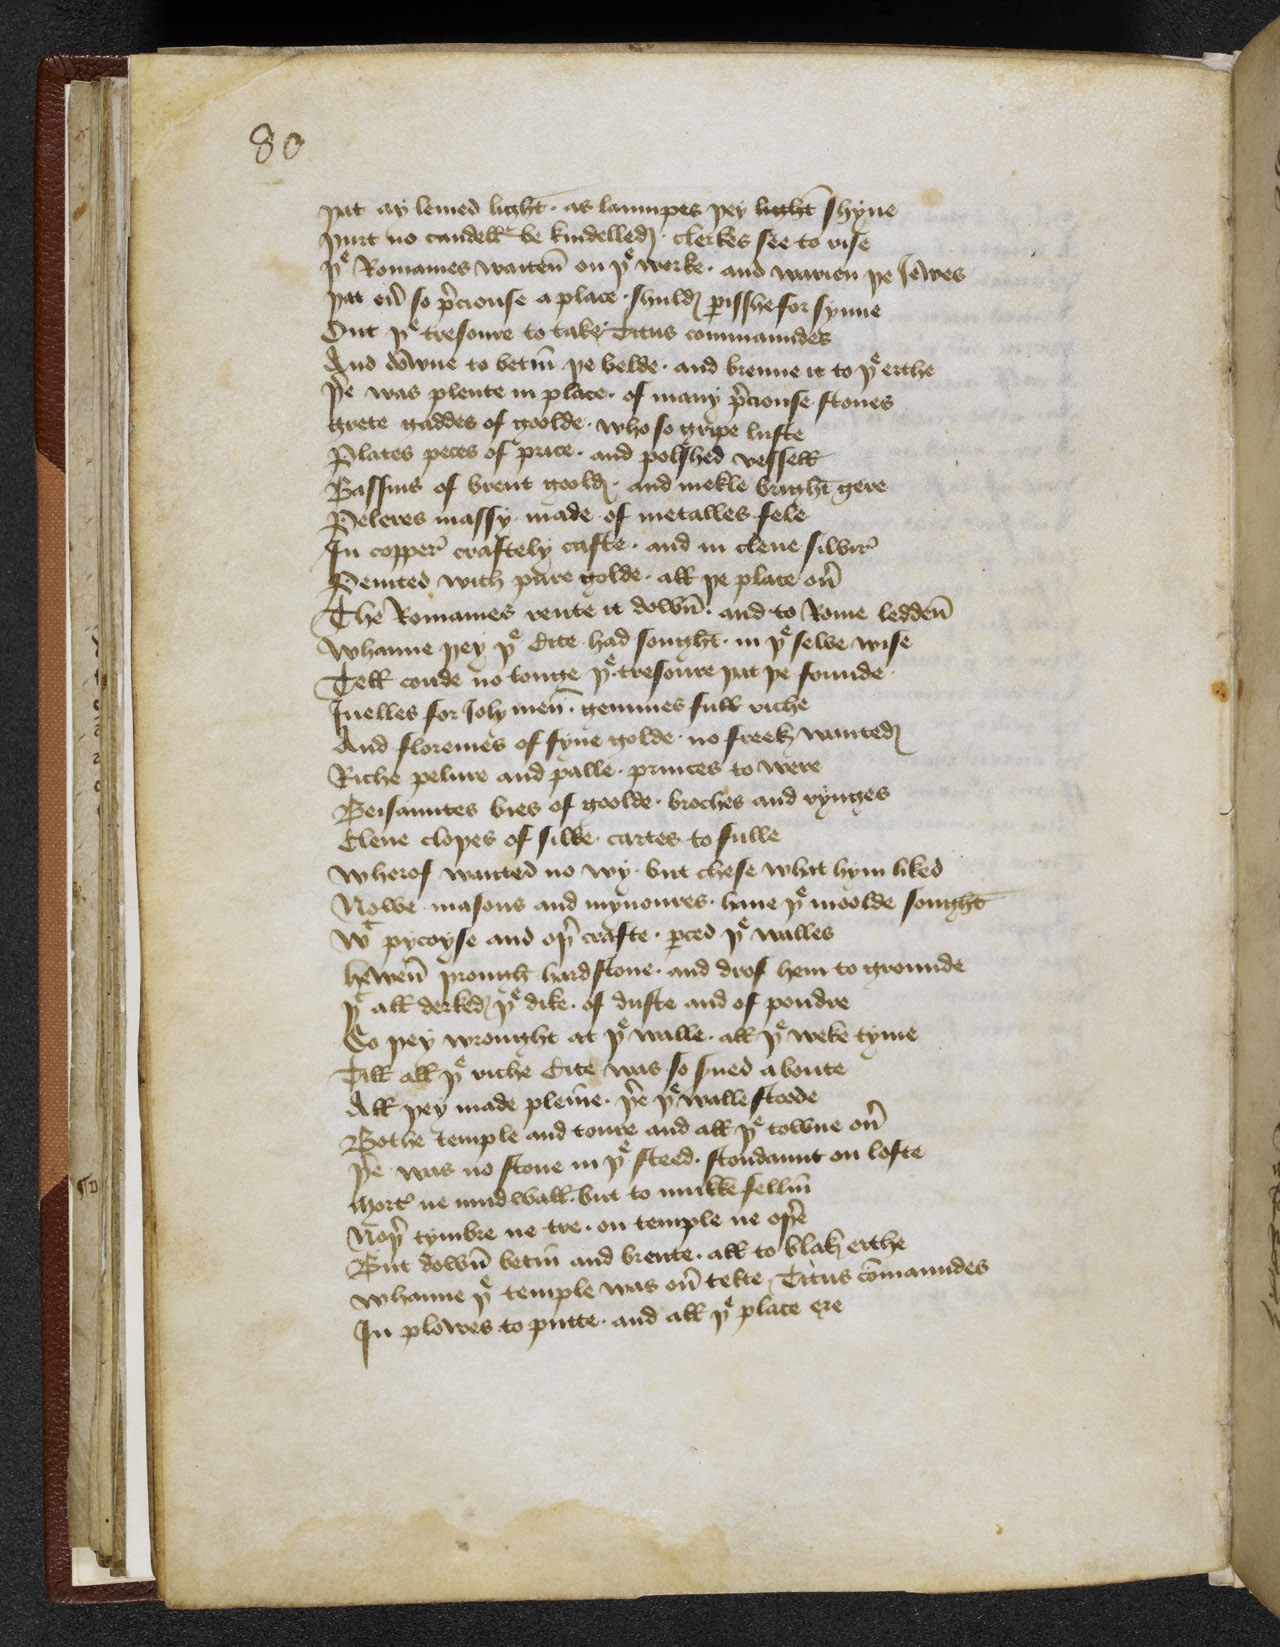 80
þat ay lemed light · as laumpes þey light shyne
þurt no candell be kindelled · clerkes fee to rise
þe Romaines waiten̄ on þe werke · and warien þe Iewes
þat eu̓ so p̓ciouse a place · shuld ꝑisshe for synne
Out þe tresoure to take Titus commaundes
And downe to betin̄ þe belde · and brenne it to þe erthe
þ̓e was plente in place · of many p̓ciouse stones
Grete gaddes of goolde · who so gripe luste
Plates peces of price · and polshed vessell
Bassins of brent goold · and mekle bright gere
Peleres massy made · of metalles fele
In copper̓ craftely caste · and in clene siluer̓
Peinted with pure golde · all þe place ou̓
The Romaines rente it down̄ · and to Rome ledden̄
Whanne þey þe Cite had sought · in þe selwe wise
Tell coude no tonge þe tresoure þat þe founde
Iuelles for Ioly men̄ · gemmes full riche
And florenes of fyne golde · no freek wanted
Riche pelure and palle · princes to were
Beisauntes bies of goolde · broches and rynges
Clene cloþes of silke · cartes to fulle
Wherof wanted no wy · but chese what hym liked
Nowe masons and mynoures · haue þe moolde sought
Wt pycoyse and oþ̓ crafte · ꝑced þe walles
hewen̄ þrough hard stone · and drof hem to grounde
þt all derked þe dike · of duste and of poudre
So þey wrought at þe walle · all þe weke tyme
Till all þe riche Cite was so sued aboute
All þey made pleine · þ̓e þe walle stoode
Bothe temple and toure and all þe towne ou̓
þ̓e was no stone in þe steed · stondaunt on lofte
Mort̓ ne mudwall · but to mukke fellin̄
Noþ̓ tymbre ne tre · on temple ne oþ̓e
But down̄ betin̄ and brente · all to blak erthe
Whanne þe temple was ou̓ telte Titus com̄aundes
In plowes to putte · and all þe place ere